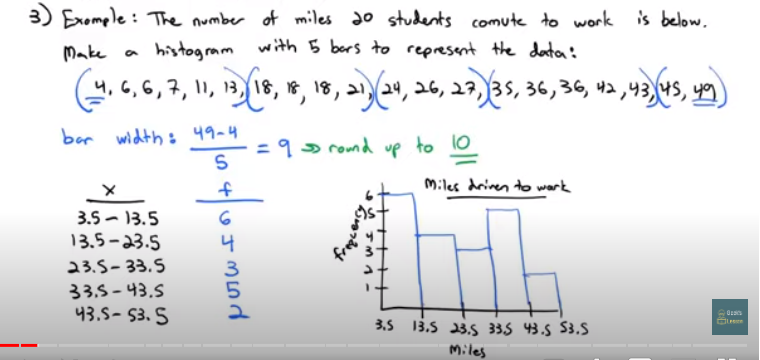 3) Example: The number of miles 20 students comute to work is below.
Make a histogram with 5 bars to represent the data:
(4, 6, 6, 7, 11, 13,)(18, 18, 18, 21,)(24, 26, 27,)(35, 36, 36, 42, 43,)(45, 49)
bar width: 49-4/5 = 9 => round up to 10
x f
3.5 - 13.5 6
13.5 - 23.5 4
23.5 - 33.5 3
33.5 - 43.5 5
43.5 - 53.5 2
Miles driven to work
frequency
6
5
4
3
2
1
3.5 13.5 23.5 33.5 43.5 53.5
Miles